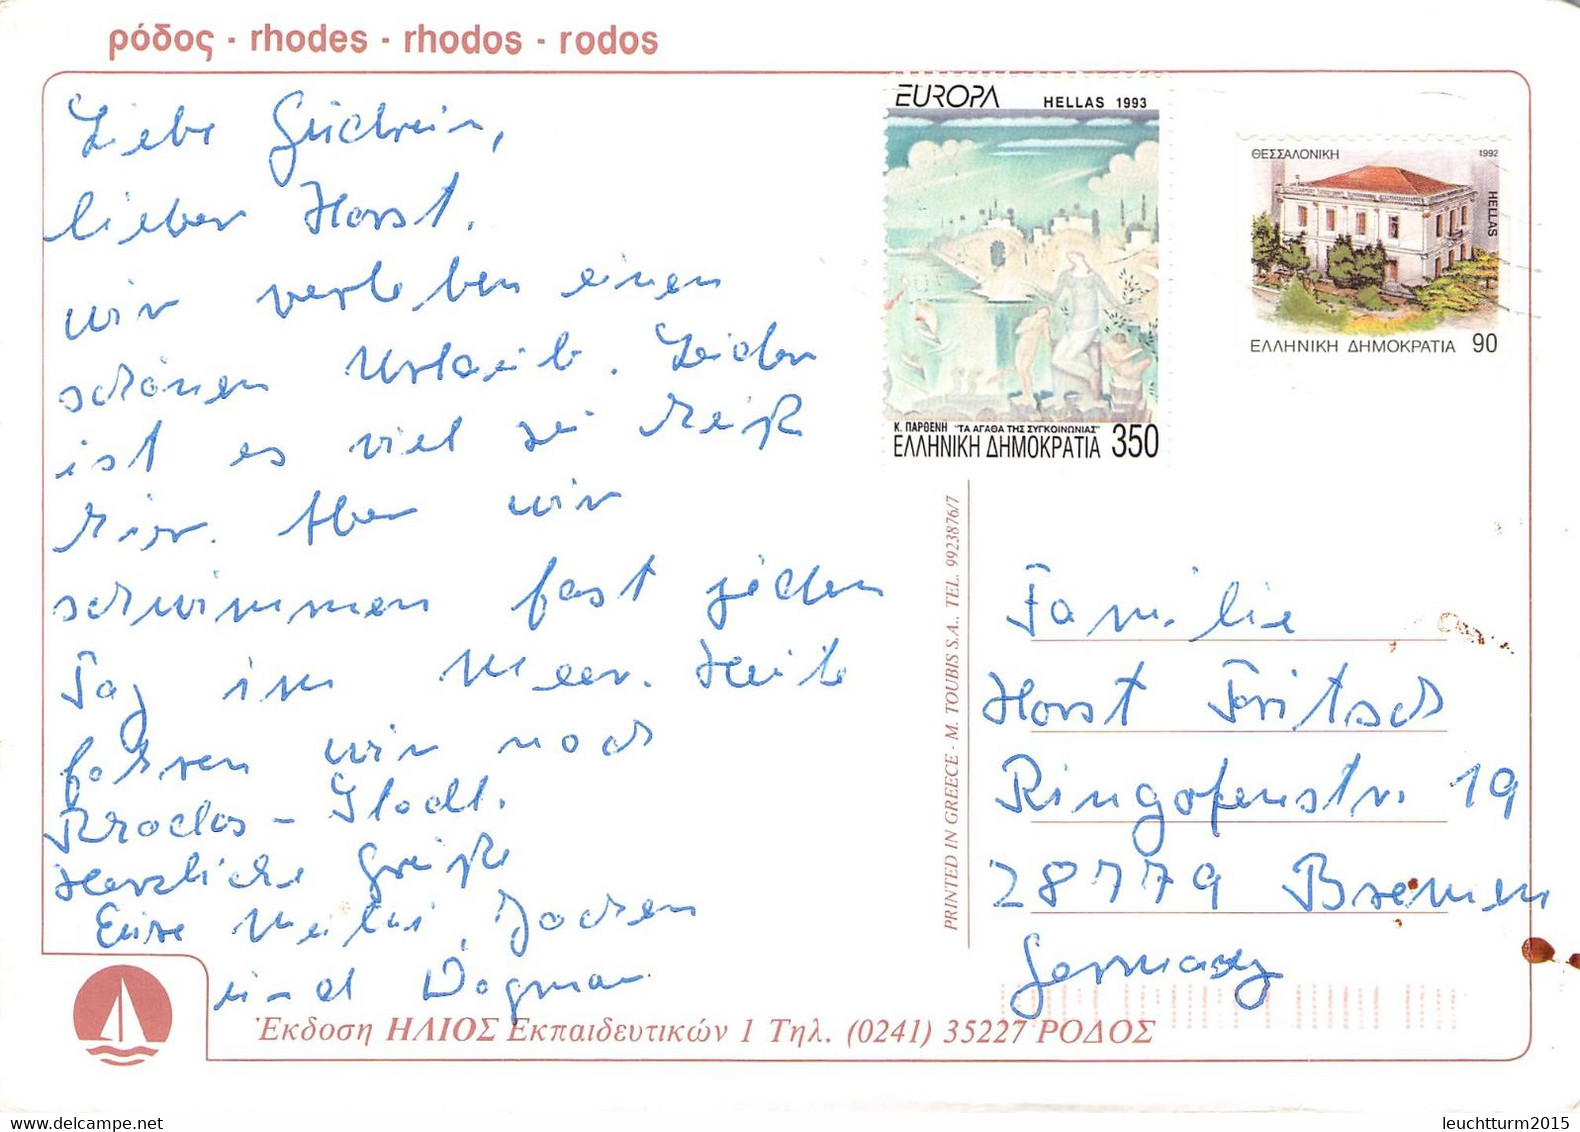 ρόδος - rhodes - rhodos - rodos
Liebe Gudrun,
lieber Horst.
wir verleben einen
schönen Urlaub. Leider
ist es viel zu heiß
hier. Aber wir
schwimmen fast jeden
Tag im Meer. Heute
fahren wir noch
Rhodos-Stadt.
Herzliche Grüße
Eure Jochen
und Dagmar
EUROPA HELLAS 1993
Κ. ΠΑΡΘΕΝΗ "ΤΑ ΑΓΑΘΑ ΤΗΣ ΣΥΓΚΟΙΝΩΝΙΑΣ"
ΕΛΛΗΝΙΚΗ ΔΗΜΟΚΡΑΤΙΑ 350
ΘΕΣΣΑΛΟΝΙΚΗ 1992
HELLAS
ΕΛΛΗΝΙΚΗ ΔΗΜΟΚΡΑΤΙΑ 90
PRINTED IN GREECE - M. TOUBIS S.A., TEL. 9923876/7
Familie
Horst Fritsch
Ringofenstr. 19
28779 Bremen
Germany
Έκδοση ΗΛΙΟΣ Εκπαιδευτικών 1 Τηλ. (0241) 35227 ΡΟΔΟΣ
Delcampe.net
leuchtturm2015